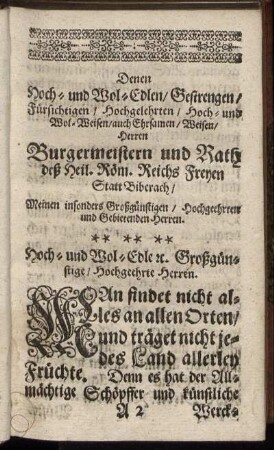 Denen
Hoch- und Wol-Edlen/ Gestrengen/
Fürsichtigen / Hochgelehrten / Hoch- und
Wol-Weisen/ auch Ehrsamen/ Weisen/
Herren
Burgermeistern und Rath
deß Heil. Röm. Reichs Freyen
Statt Biberach/
Meinen insonders Großgünstigen / Hochgeehrten
und Gebietenden Herren.
Hoch- und Wol-Edle ꝛc. Großgün-
stige / Hochgeehrte Herren.
MAn findet nicht al-
les an allen Orten/
und träget nicht je-
des Land allerley
Früchte. Denn es hat der All-
mächtige Schöpffer und künstliche
A 2 Werck-